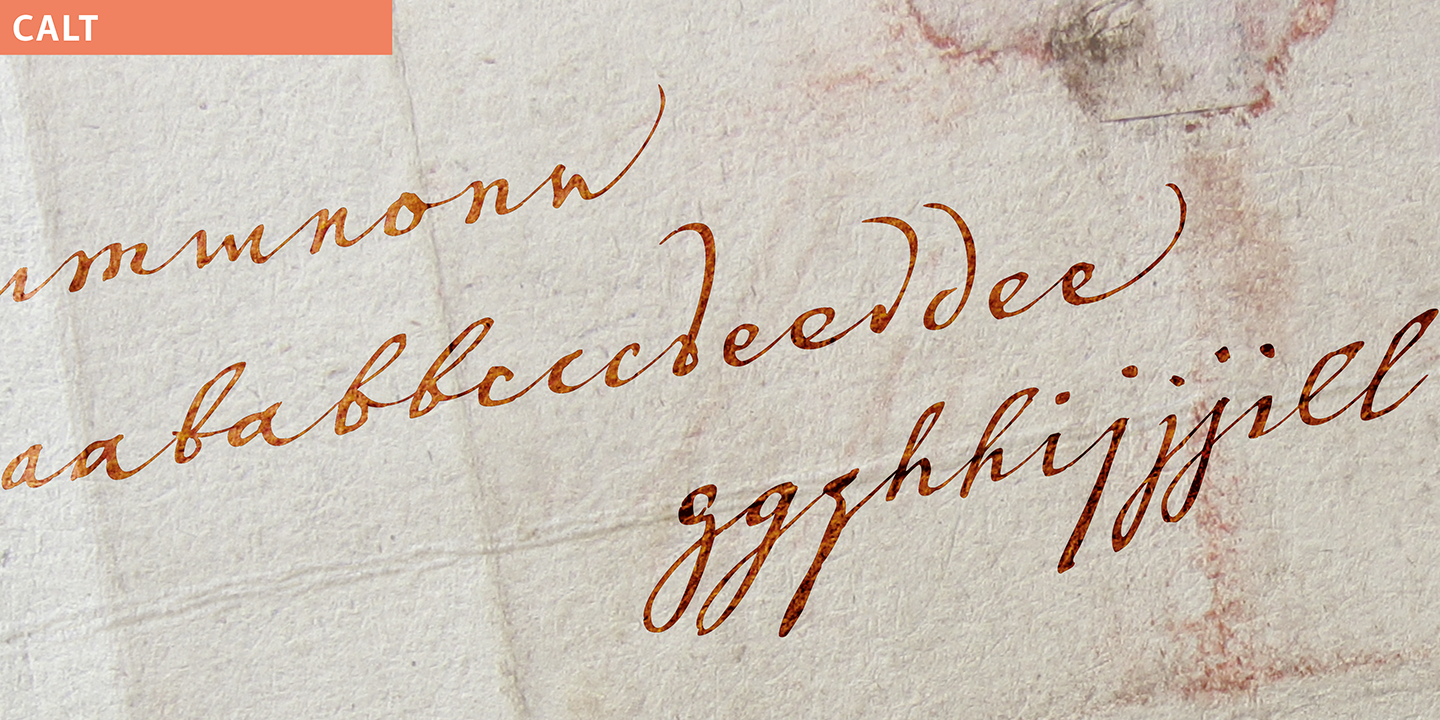 CALT
ımwnonn
aababbcccdeeeddee
ggghhijjjıll